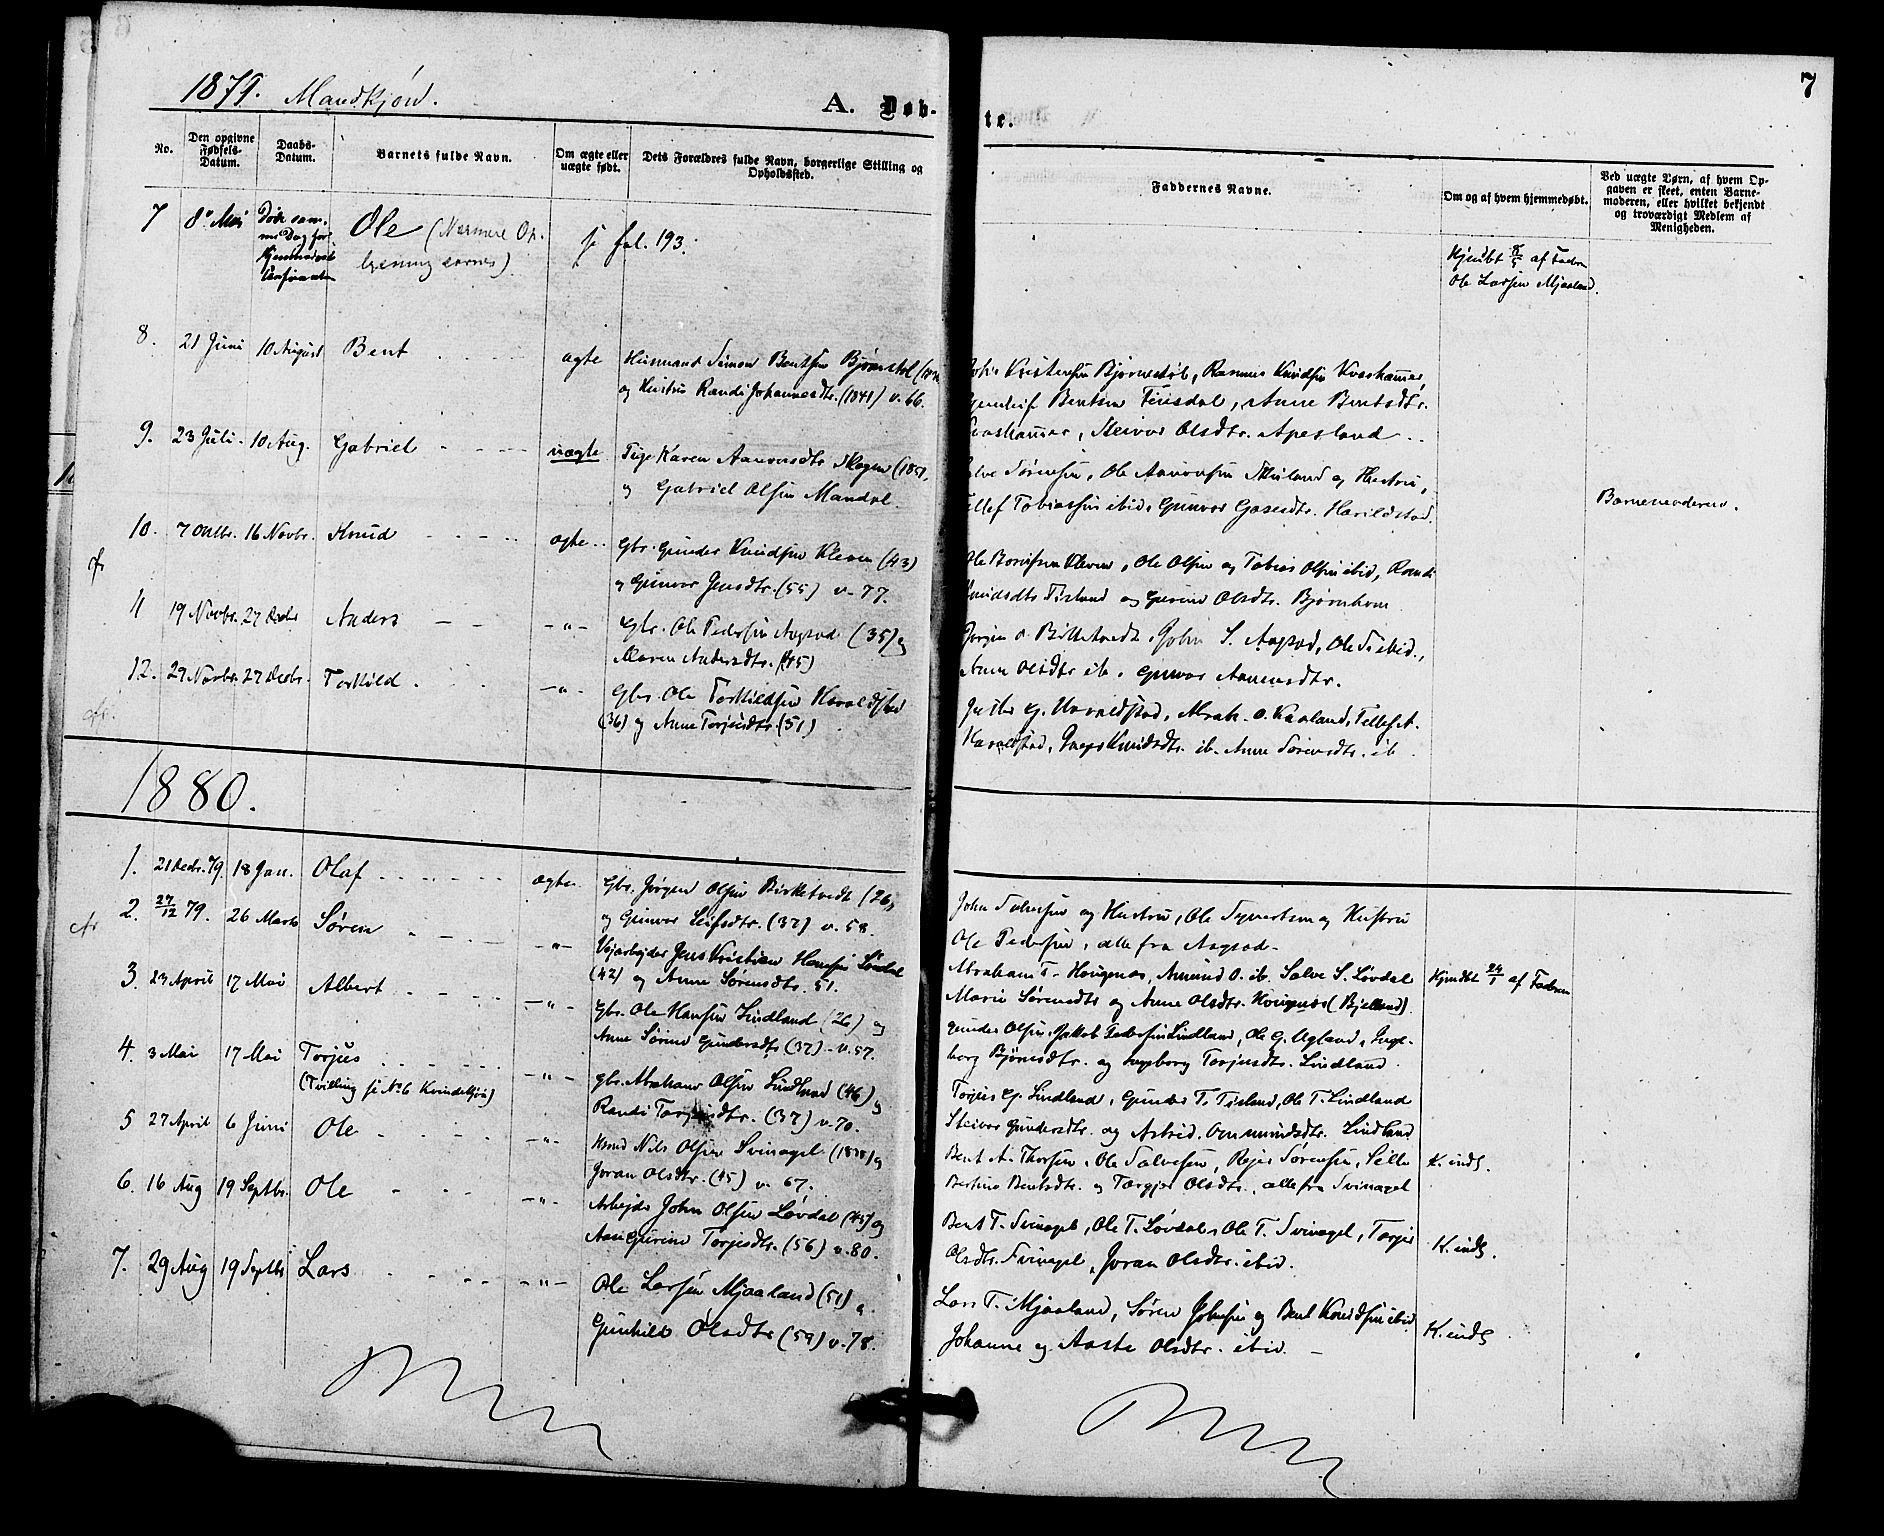 1879. Mandkjøn.
A. Døb-
te.
7
No.
Den opgivne Fødsels-Datum.
Daabs-Datum.
Barnets fulde Navn.
Om ægte eller uægte født.
Dets Forældres fulde Navn, borgerlige Stilling og Opholdssted.
Faddernes Navne.
Om og af hvem hjemmedøbt.
Ved uægte Børn, af hvem Op-
gaven er skeet, enten Barne-
moderen, eller hvilket bekjendt
og troværdigt Medlem af
Menigheden.
7 8de Mai Døde sam- Ole (Nærmere Op- se fol. 193. Hjemdbt 8/5 af Faderen
me Dag før lysning savnes) Ole Larsen Mjaaland.
Hjemmedaab
8. 21 Juni 10 August Bent ægte Husmand Simon Bentsen Bjørnstøl
og Hustru Randi Johannesdtr. (1841) v. 66.
Kristensen Bjørnestøl, Rasmus Knudsen Kvashammer,
Bentsen Feiisdal, Anne Bentsdtr.
Kvashammer, Steivor Olsdtr. Apesland
9. 23 Juli 10 Aug. Gabriel uægte Pige Karen Aanonsdtr Skogen (1851,
og Gabriel Olsen Mandal.
Sørensen, Ole Aanonsen og Hustru,
Tellef Tobiassen ibid, Gunvor Gosesdtr. Harildstad.
Barnemoderen.
10. 7 Oktbr. 16 Novbr. Knud ægte Gbr. Gunder Knudsen Kleven (43)
og Gunvor Jensdtr. (55) v. 77.
Ole Kleven, Ole Olsen og Tobias Olsen ibid, Randi
Knudsdtr Tisland og Gurine Olsdtr. Bjørnhom
11 19 Novbr. 27 Decbr Anders -"- Gbr. Ole Pedersen Aagsod (35) og
Maren Andersdtr. (45)
Jørgen O. Birketvedt, John S. Aagsod, Ole ibid.,
Anne Olsdtr ib. Gunvor Aanensdtr.
12. 29 Novbr. 27 Decbr. Torkild -"- Gbr. Ole Torkildsen Haraldstad
(36) og Anne Torjusdtr. (51)
G. Haraldstad, Abrah. O. Kaaland, Tellef A.
Haraldstad, Knudsdtr. ib. Anne Sørensdtr. ib
1880.
1. 21 Decbr. 79. 18 Jan. Olaf ægte Gbr. Jørgen Olsen Birketvedt (26)
og Gunvor Leifsdtr. (37) v. 58.
John Salvesen og Hustru, Ole Syvertsen og Hustru
Ole Pedersen, alle fra Aagsod.
2. 27/12 79. 26 Marts Søren -"- Veiarbeider Jens Kristian Hansen Løvdal
(42) og Anne Sørensdtr. 51.
Abraham T. Hougenes, Amund O. ib. Salve S. Løvdal
Marie Sørensdtr og Anne Olsdtr. Hougenes (Bjelland)
Hjmdbt 24/1 af Faderen
3. 23 April 17 Mai Albert -"- Gbr. Ole Hansen Lindland (26) og
Anne Sørine Gundersdtr (37) v. 57.
Gunder Olsen, Jakob Pedersen Lindland, Ole G. Ugland, Inge-
borg Bjørnsdtr. og Ingeborg Torjusdtr. Lindland
4. 3 Mai 17 Mai Torjus -"- Gbr. Abraham Olsen Lindland (46) og
(Tvilling se No 6 Kvindekjøn) Randi Torjusdtr. (37) v. 70.
Torjus G. Lindland, Gunder T. Tisland, Ole T. Lindland
Steivor Gundersdtr. og Astrid Ommundsdtr. Lindland
5 27 April 6 Juni Ole -"- Hsmd Nils Olsen Svinagel (1838) og
Joran Olsdtr. (45) v. 67.
Bent A. Thorsen, Ole Salvesen, Sørensen, Sille
Bertine Bentsdtr. og Torgjer Olsdtr., alle fra Svinagel
K. inds.
6. 16 Aug 19 Septbr. Ole -"- Arbeider John Olsen Løvdal (45) og
Ane Gurine Torjesdtr. (56) v. 80.
Bent T. Svinagel, Ole T. Løvdal, Ole T. Svinagel, Torjer
Olsdtr. Svinagel, Joran Olsdtr. ibid.
K. inds.
7. 29 Aug 19 Septbr Lars -"- Ole Larsen Mjaaland (51) og
Gunhild Olsdtr (59) v. 78.
Lars T. Mjaaland, Søren Johnsen og Bent Knudsen ibid,
Johanne og Aaste Olsdtr. ibid.
K. inds